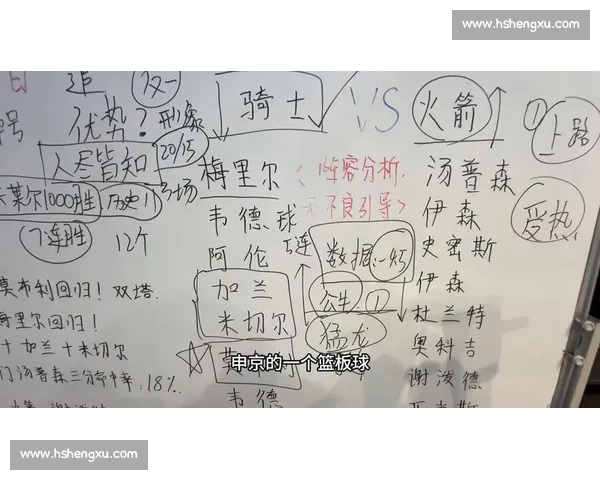 www.hshengxu.com
追
优势?
形象
人尽皆知
20/15
1000胜
历史
7连胜
12个
莫布利回归! 双塔.
梅里尔回归!
十 加兰十米切尔
汤普森三分命中率:18%
骑士
VS
火箭
上路
梅里尔
韦德
阿伦
加兰
米切尔
韦德
球
5连
<阵容分析,
不良引导>
数据:-45
众生
①
猛龙
汤普森
伊森
史密斯
伊森
杜兰特
奥科吉
谢泼德
受热
申京的一个篮板球
www.hshengxu.com